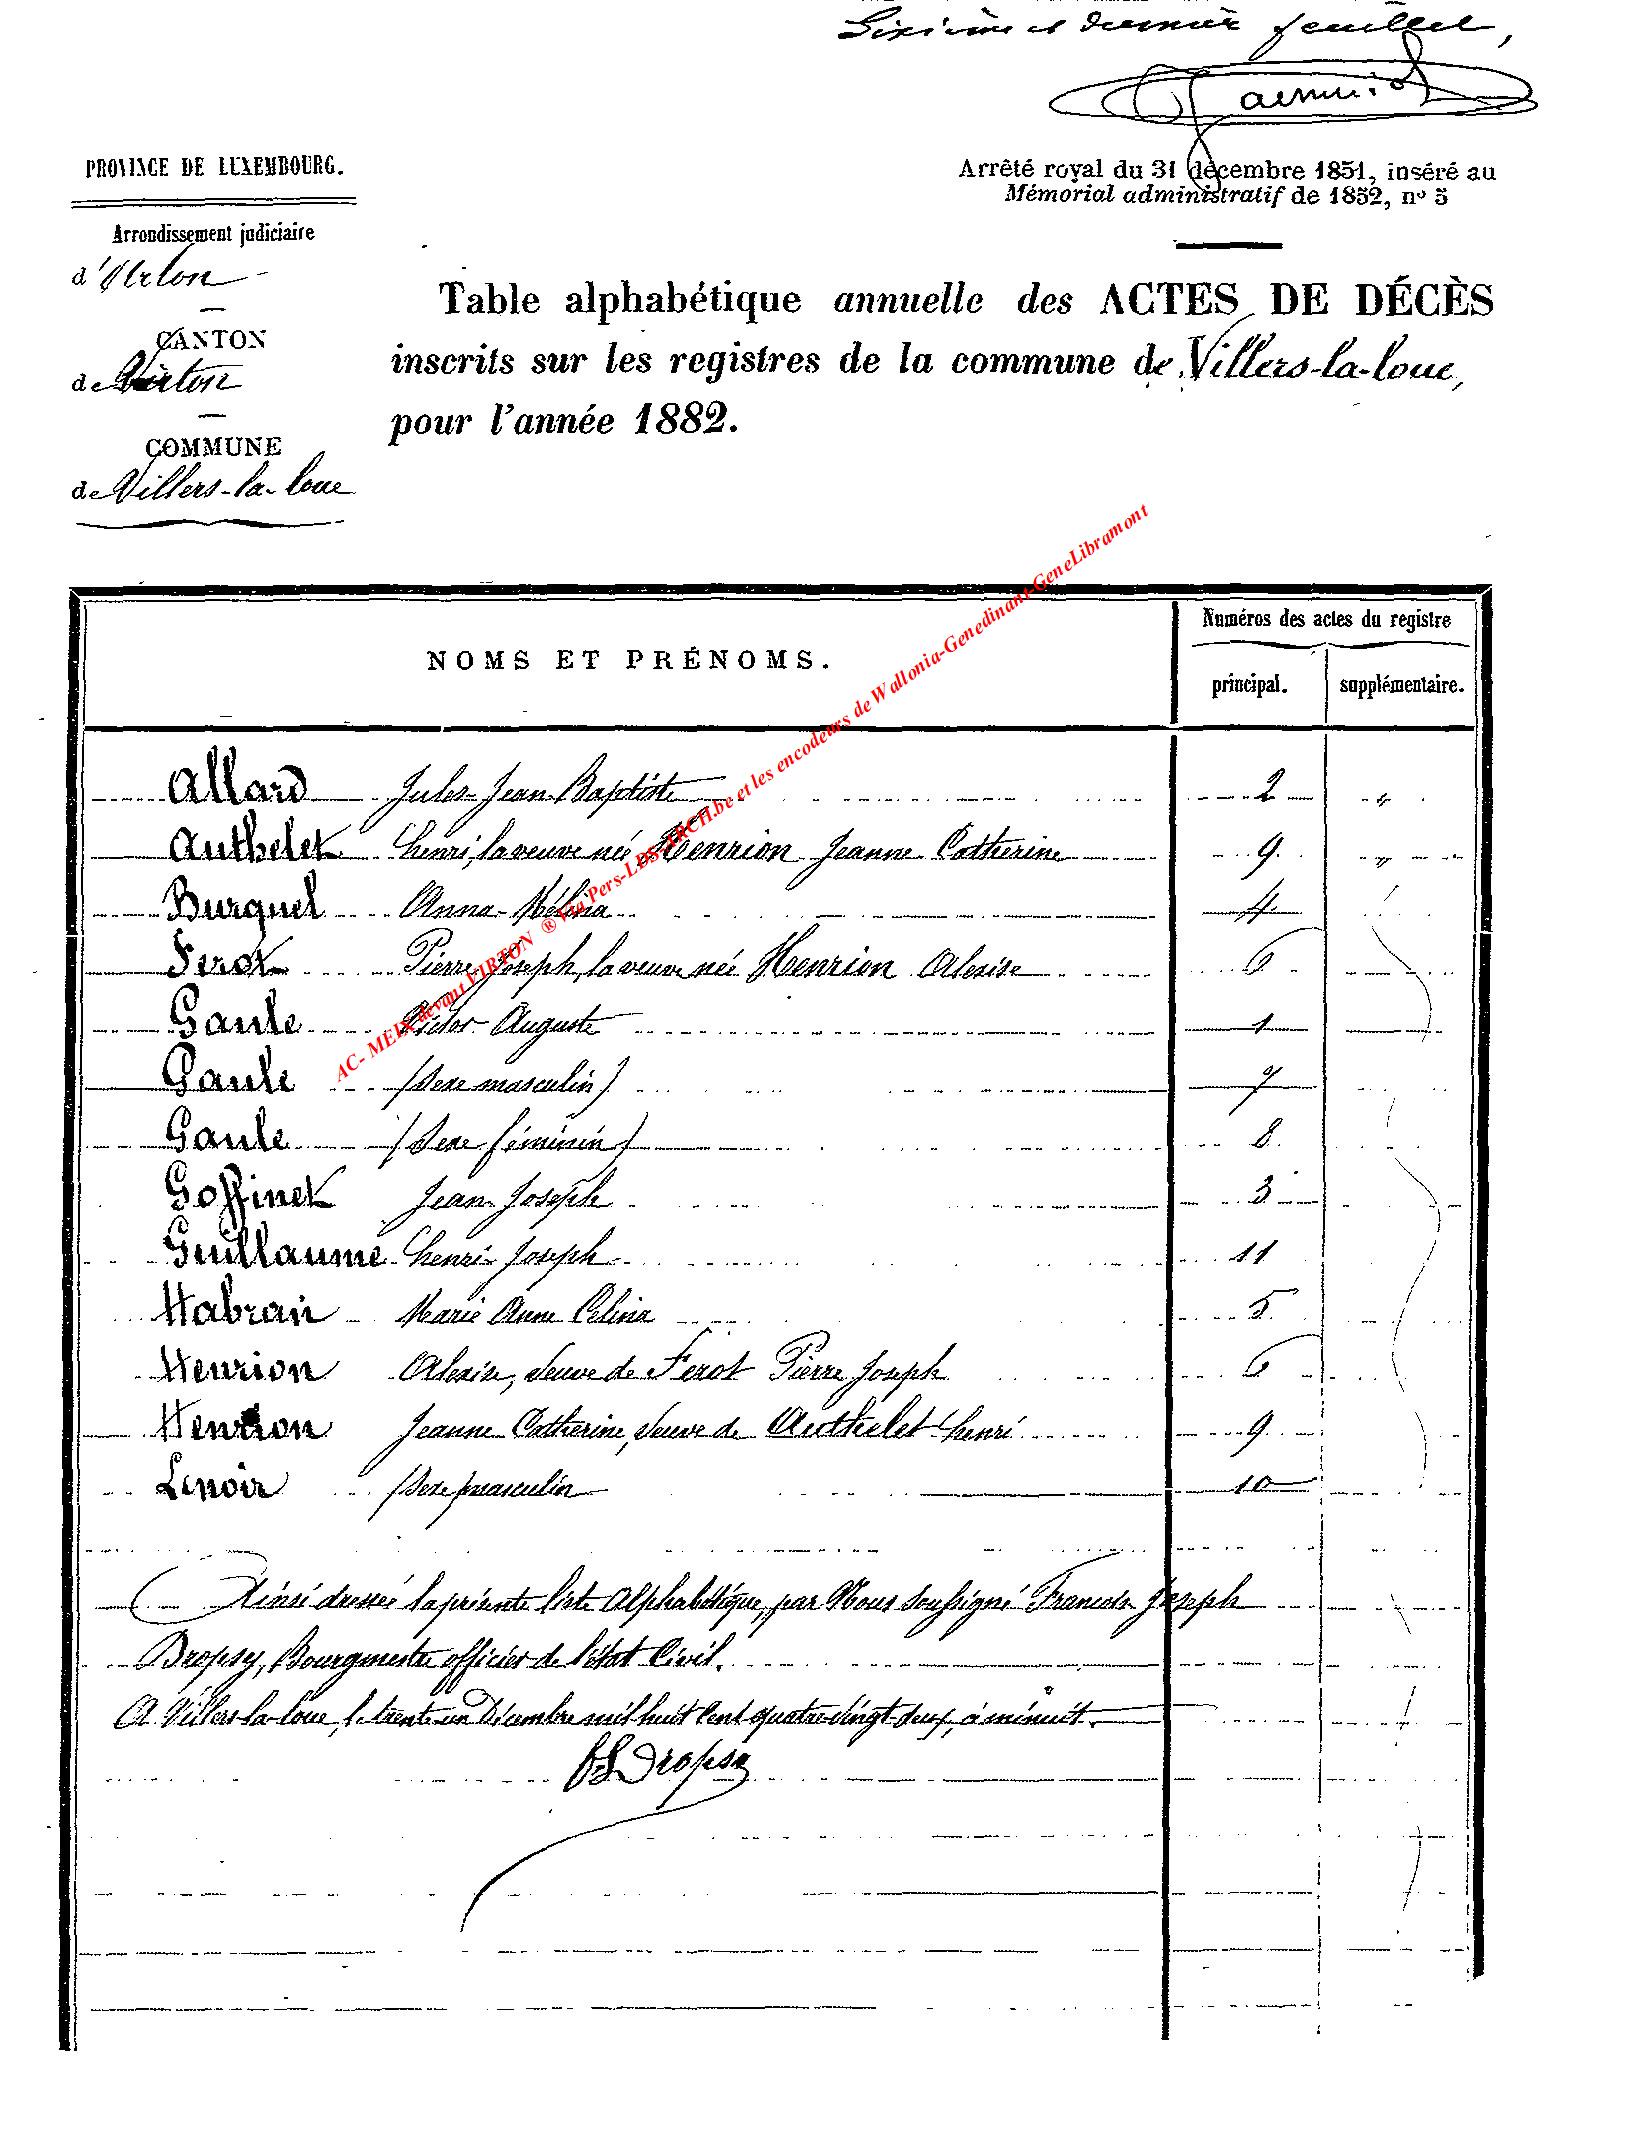 Sixième et dernier feuillet,
PROVINCE DE LUXEMBOURG.
Arrêté royal du 31 décembre 1851, inséré au
Mémorial administratif de 1852, nº 5
Arrondissement judiciaire
d'Arlon
CANTON
de Virton
COMMUNE
de Villers-la-loue
Table alphabétique annuelle des ACTES DE DÉCÈS
inscrits sur les registres de la commune de Villers-la-loue,
pour l'année 1882.
NOMS ET PRÉNOMS.
Numéros des actes du registre
principal. supplémentaire.
Allard Jules Jean Baptiste 2 "
Authelet henri, la veuve née Henrion Jeanne Catherine 9 "
Burquel Anna Mélina 4
Ferot Pierre Joseph, la veuve née Henrion Alexise 6
Gaule Victor Auguste 1
Gaule (Sexe masculin) 7
Gaule (Sexe féminin) 8
Goffinet Jean Joseph 3
Guillaume henri Joseph 11
Habran Marie Anne Célina 5
Henrion Alexise, veuve de Ferot Pierre Joseph 6
Henrion Jeanne Catherine, veuve de Authelet henri 9
Lenoir (Sexe masculin 10
Ainsi dressé la présente liste Alphabétique, par Nous soussigné François Joseph
Dropsy, Bourgmestre officier de l'état Civil.
A Villers-la-loue, le trente-un Décembre mil huit Cent quatre-vingt deux, à minuit.
Dropsy
AC- MEIX devant VIRTON ® Via Pers-LDS-ARCH.be et les encodeurs de Wallonia-Genedinant-GeneLibramont